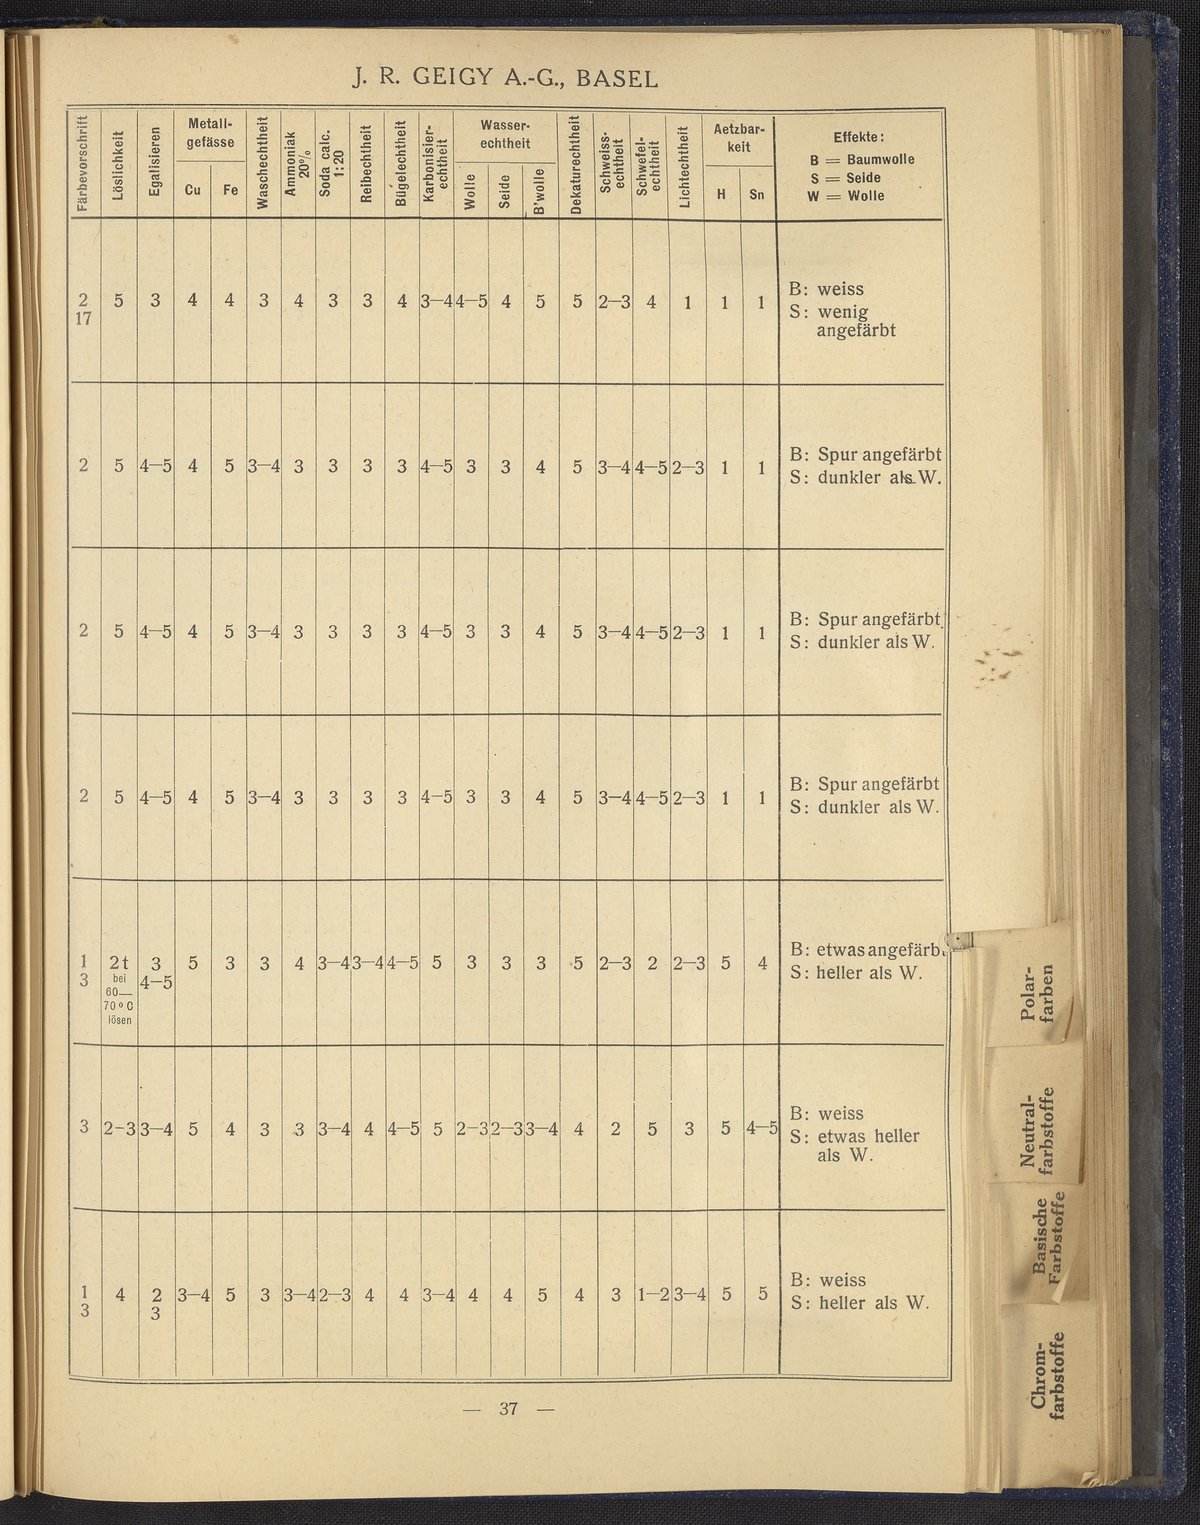 J. R. GEIGY A.-G., BASEL
Färbevorschrift
Löslichkeit
Egalisieren
Metall-
gefässe
Cu Fe
Waschechtheit
Ammoniak
20%
Soda calc.
1:20
Reibechtheit
Bügelechtheit
Karbonisier-
echtheit
Wasser-
echtheit
Wolle
Seide
B'wolle
Dekaturechtheit
Schweiss-
echtheit
Schwefel-
echtheit
Lichtechtheit
Aetzbar-
keit
H Sn
Effekte:
B = Baumwolle
S = Seide
W = Wolle
2 5 3 4 4 3 4 3 3 4 3—4 4—5 4 5 5 2—3 4 1 1 1
17
B: weiss
S: wenig
angefärbt
2 5 4—5 4 5 3—4 3 3 3 3 4—5 3 3 4 5 3—4 4—5 2—3 1 1
B: Spur angefärbt
S: dunkler als W.
2 5 4—5 4 5 3—4 3 3 3 3 4—5 3 3 4 5 3—4 4—5 2—3 1 1
B: Spur angefärbt
S: dunkler als W.
2 5 4—5 4 5 3—4 3 3 3 3 4—5 3 3 4 5 3—4 4—5 2—3 1 1
B: Spur angefärbt
S: dunkler als W.
1 2t 3 5 3 3 4 3—4 3—4 4—5 5 3 3 3 5 2—3 2 2—3 5 4
3 bei 4—5
60—
70° C
lösen
B: etwas angefärbt
S: heller als W.
3 2-3 3—4 5 4 3 3 3—4 4 4—5 5 2—3 2—3 3—4 4 2 5 3 5 4—5
B: weiss
S: etwas heller
als W.
1 4 2 3—4 5 3 3—4 2—3 4 4 3—4 4 4 5 4 3 1—2 3—4 5 5
3 3
B: weiss
S: heller als W.
— 37 —
Polar-
farben
Neutral-
farbstoffe
Basische
Farbstoffe
Chrom-
farbstoffe